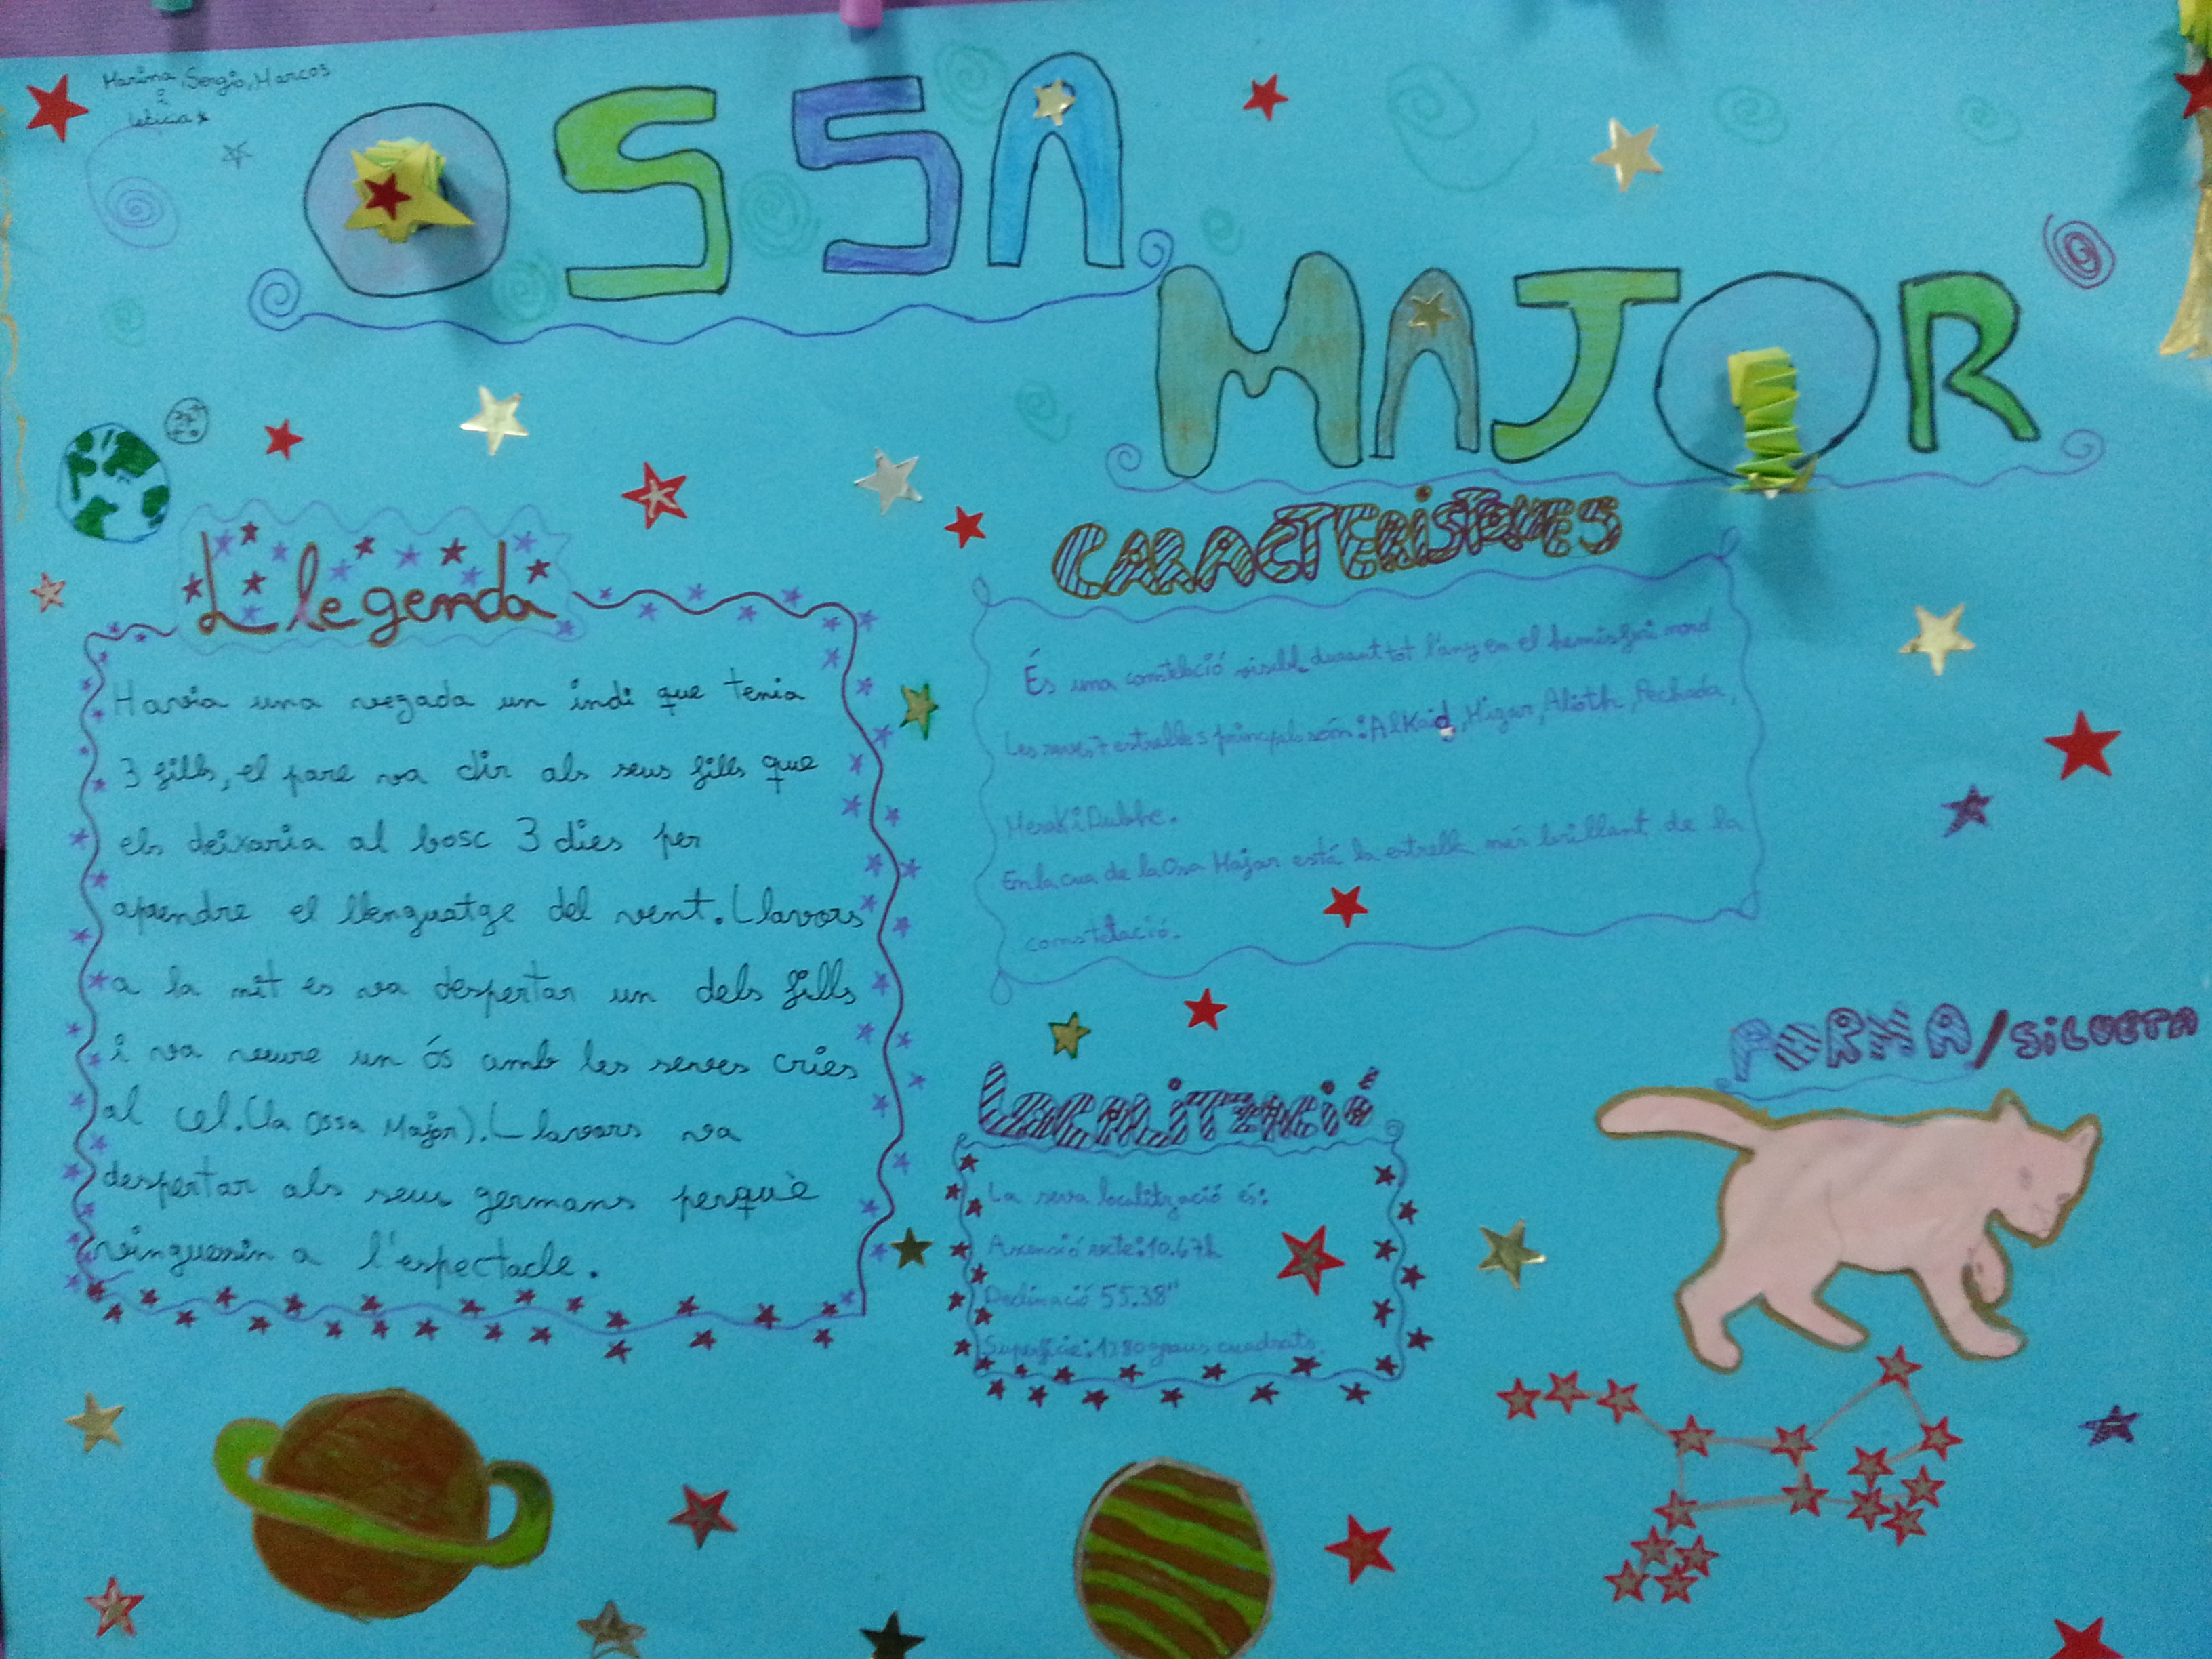 Marina, Sergio, Marcos
i
leticia
OSSA
MAJOR
Llegenda
Havia una vegada un indi que tenia
3 fills, el pare va dir als seus fills que
els deixaria al bosc 3 dies per
apendre el llenguatge del vent. Llavors
a la nit es va despertar un dels fills
i va veure un ós amb les seves cries
al cel. (la Ossa Major). Llavors va
despertar als seus germans perquè
vinguessin a l'espectacle.
CARACTERÍSTIQUES
És una constelació visible durant tot l'any en el hemisferi nord
Les seves 7 estrelles principals són: Alkaid, Mizar, Alioth, Pechada,
Merak i Dubhe.
En la cua de la Osa Major está la estrella més brillant de la
constelació.
LOCALITZACIÓ
La seva localització és:
Axensió recte: 10.67h
Declinació 55.38"
Superfície: 1280 graus cuadrats.
FORMA/SILUETA